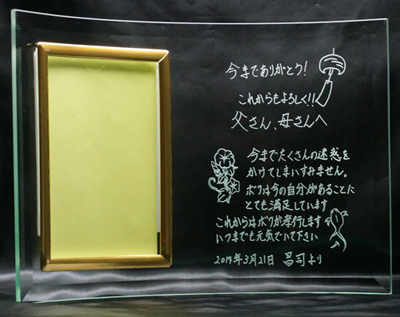 今までありがとう!
これからもよろしく!!
父さん、母さんへ
今までたくさんの迷惑を
かけてしまいすみません。
ボクは今の自分があることに
とても満足しています
これからはボクが孝行します
いつまでも元気でいて下さい
2014年3月21日 昌司より